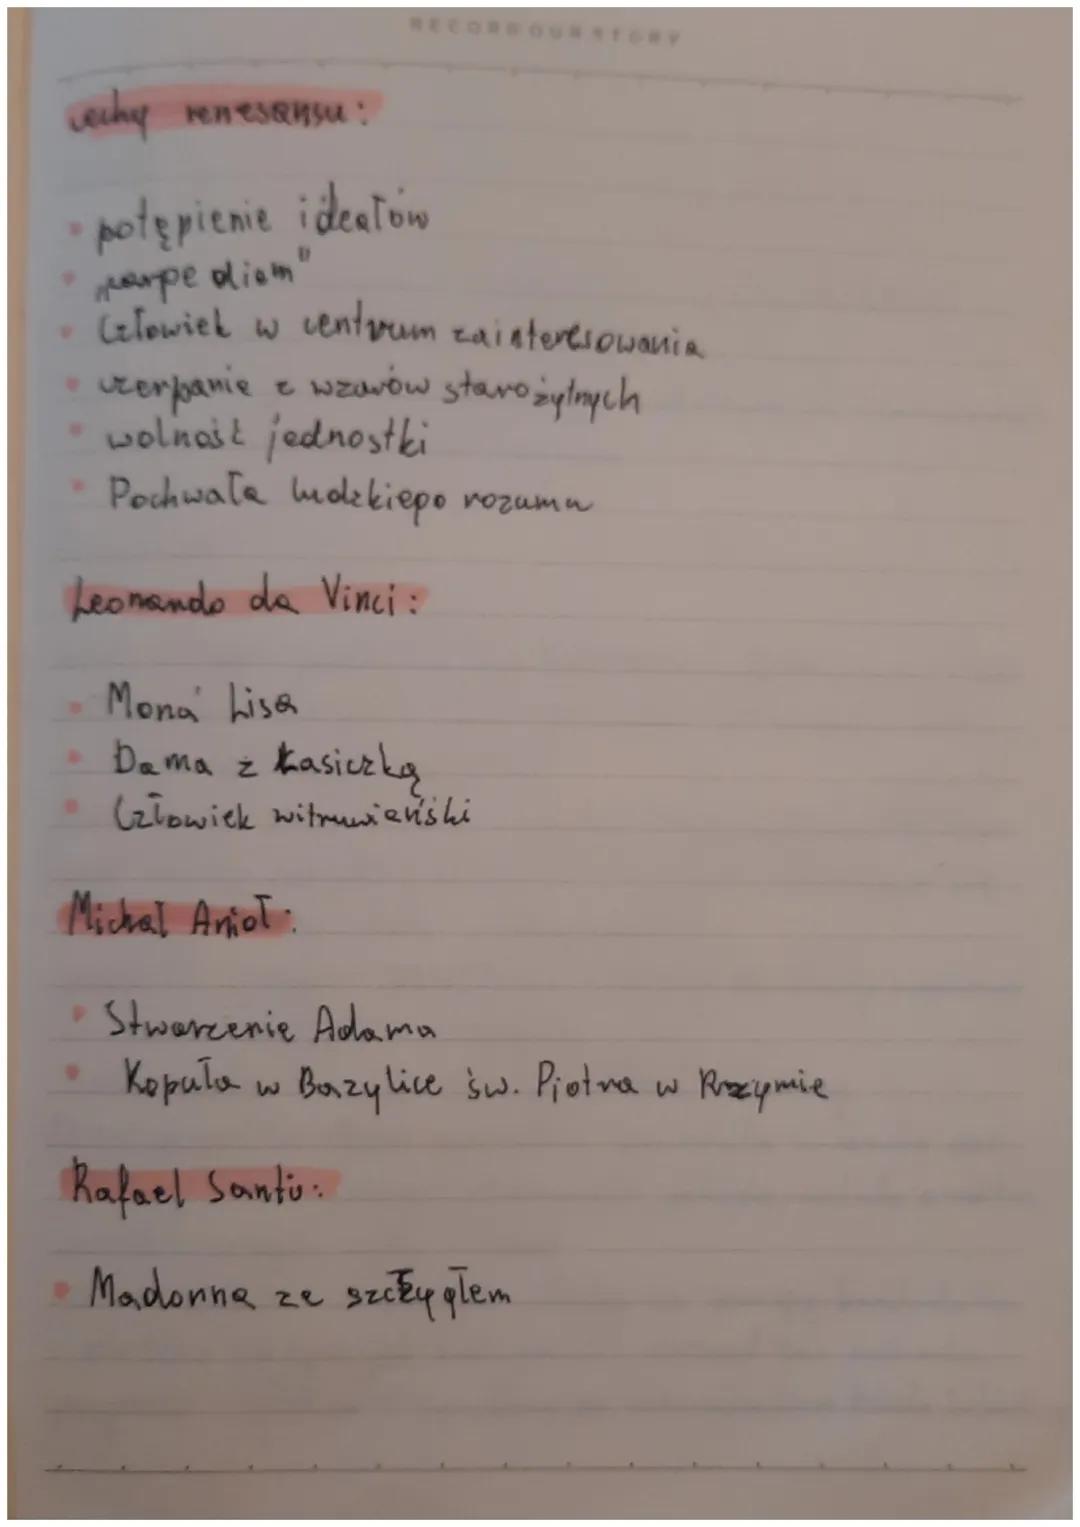 RECORD OUR STORY
cechy renesansu:
• potępienie ideałów
• „carpe diem"
• Człowiek w centrum zainteresowania
• czerpanie z wzorów starożytnych
• wolność jednostki
• Pochwała ludzkiego rozumu
Leonardo da Vinci:
• Mona Lisa
• Dama z Łasiczką
• Człowiek witruwiański
Michał Anioł:
• Stworzenie Adama
• Kopuła w Bazylice św. Piotra w Rzymie
Rafael Santi:
• Madonna ze szczygłem